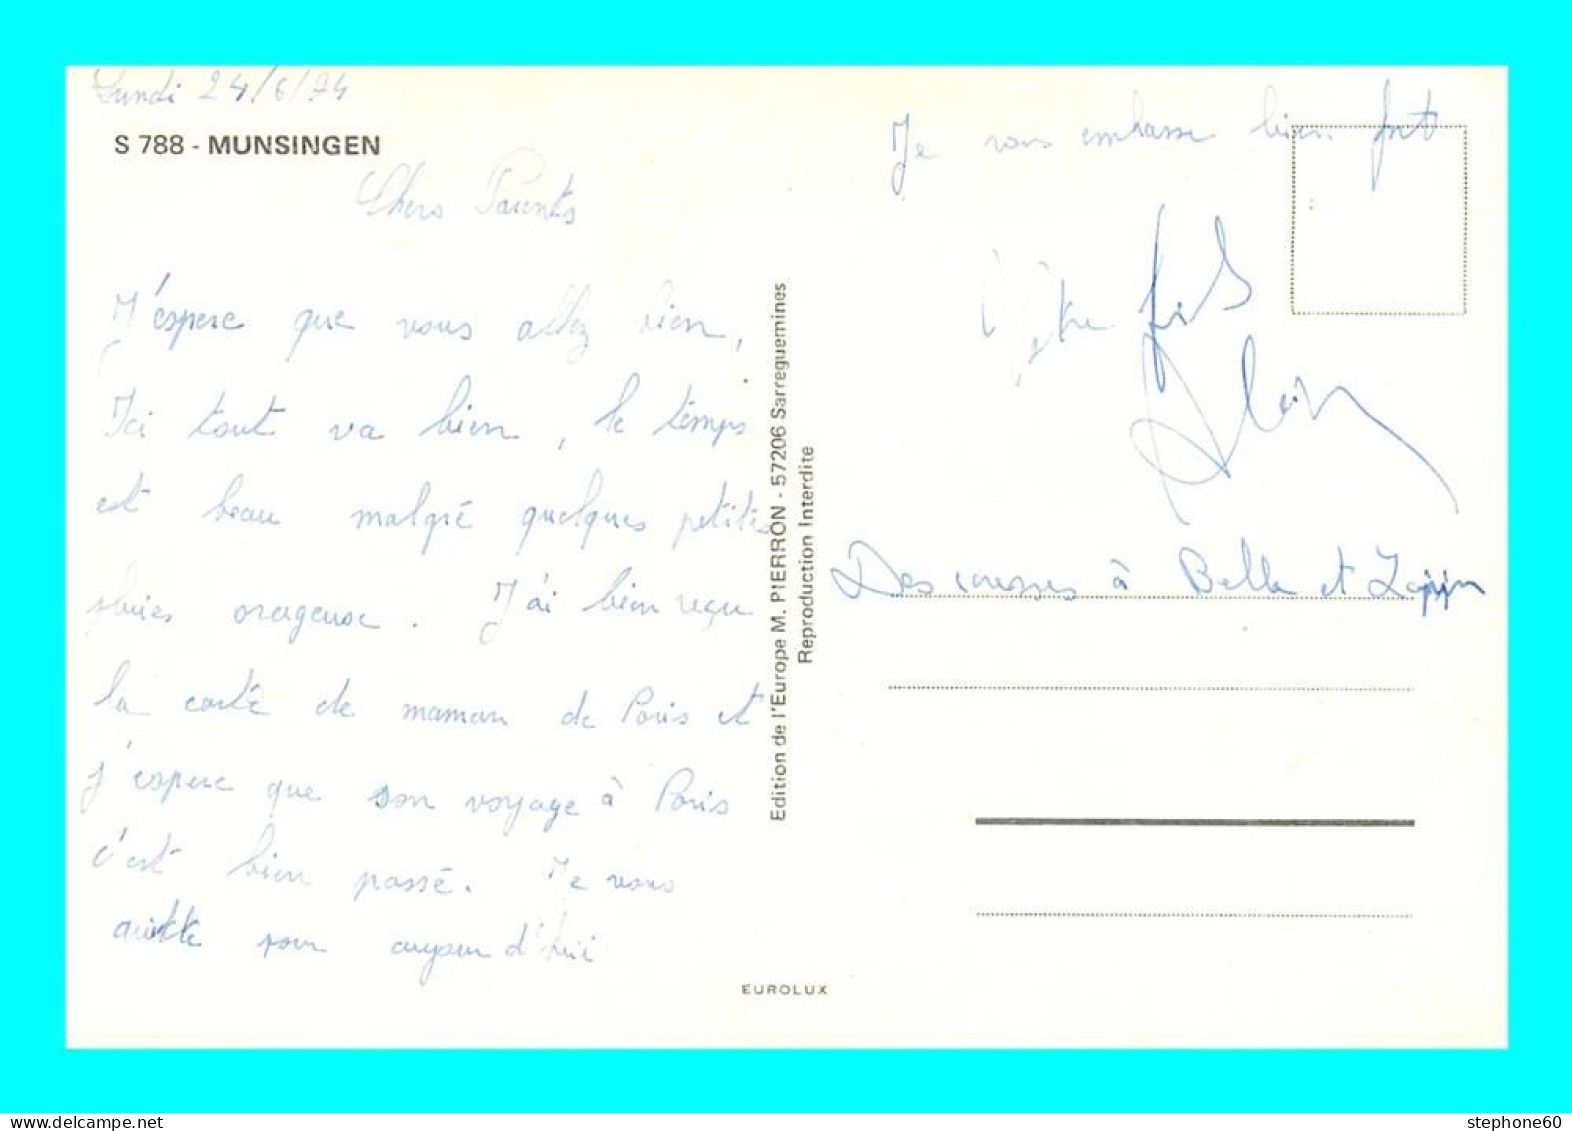 Lundi 24/6/74
S 788 - MUNSINGEN
Chers Parents
J'éspere que vous allez bien,
Ici tout va bien, le temps
est beau malgré quelques petites
pluies orageuse. J'ai bien reçu
la carte de maman de Paris et
j'espere que son voyage à Paris
c'est bien passé. Je vous
quitte pour aujour d'hui
Edition de l'Europe M. PIERRON - 57206 Sarreguemines
Reproduction Interdite
EUROLUX
Je vous embrasse bien fort
Votre fils
Alain
Des caresses à Belle et
stephone60